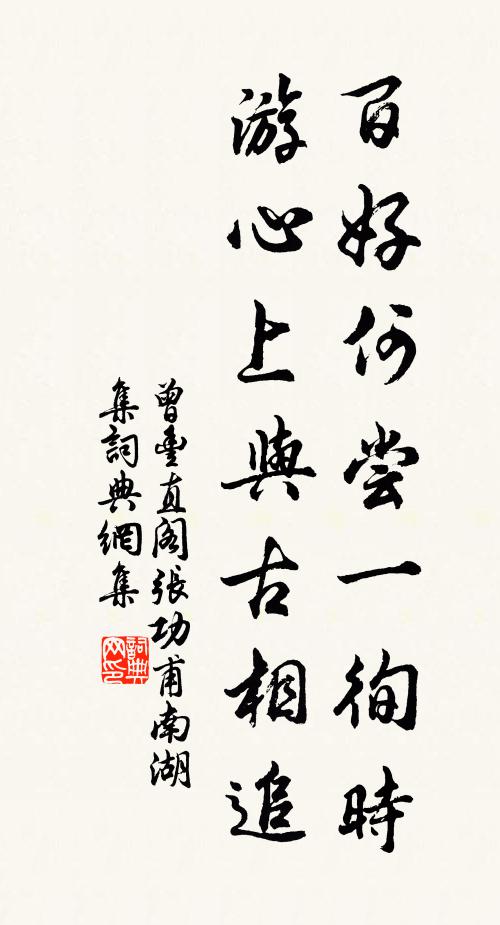 百好何尝一徇時
游心上與古相追
曾豐直阁張功甫南湖
集詞典網集
詞典网印